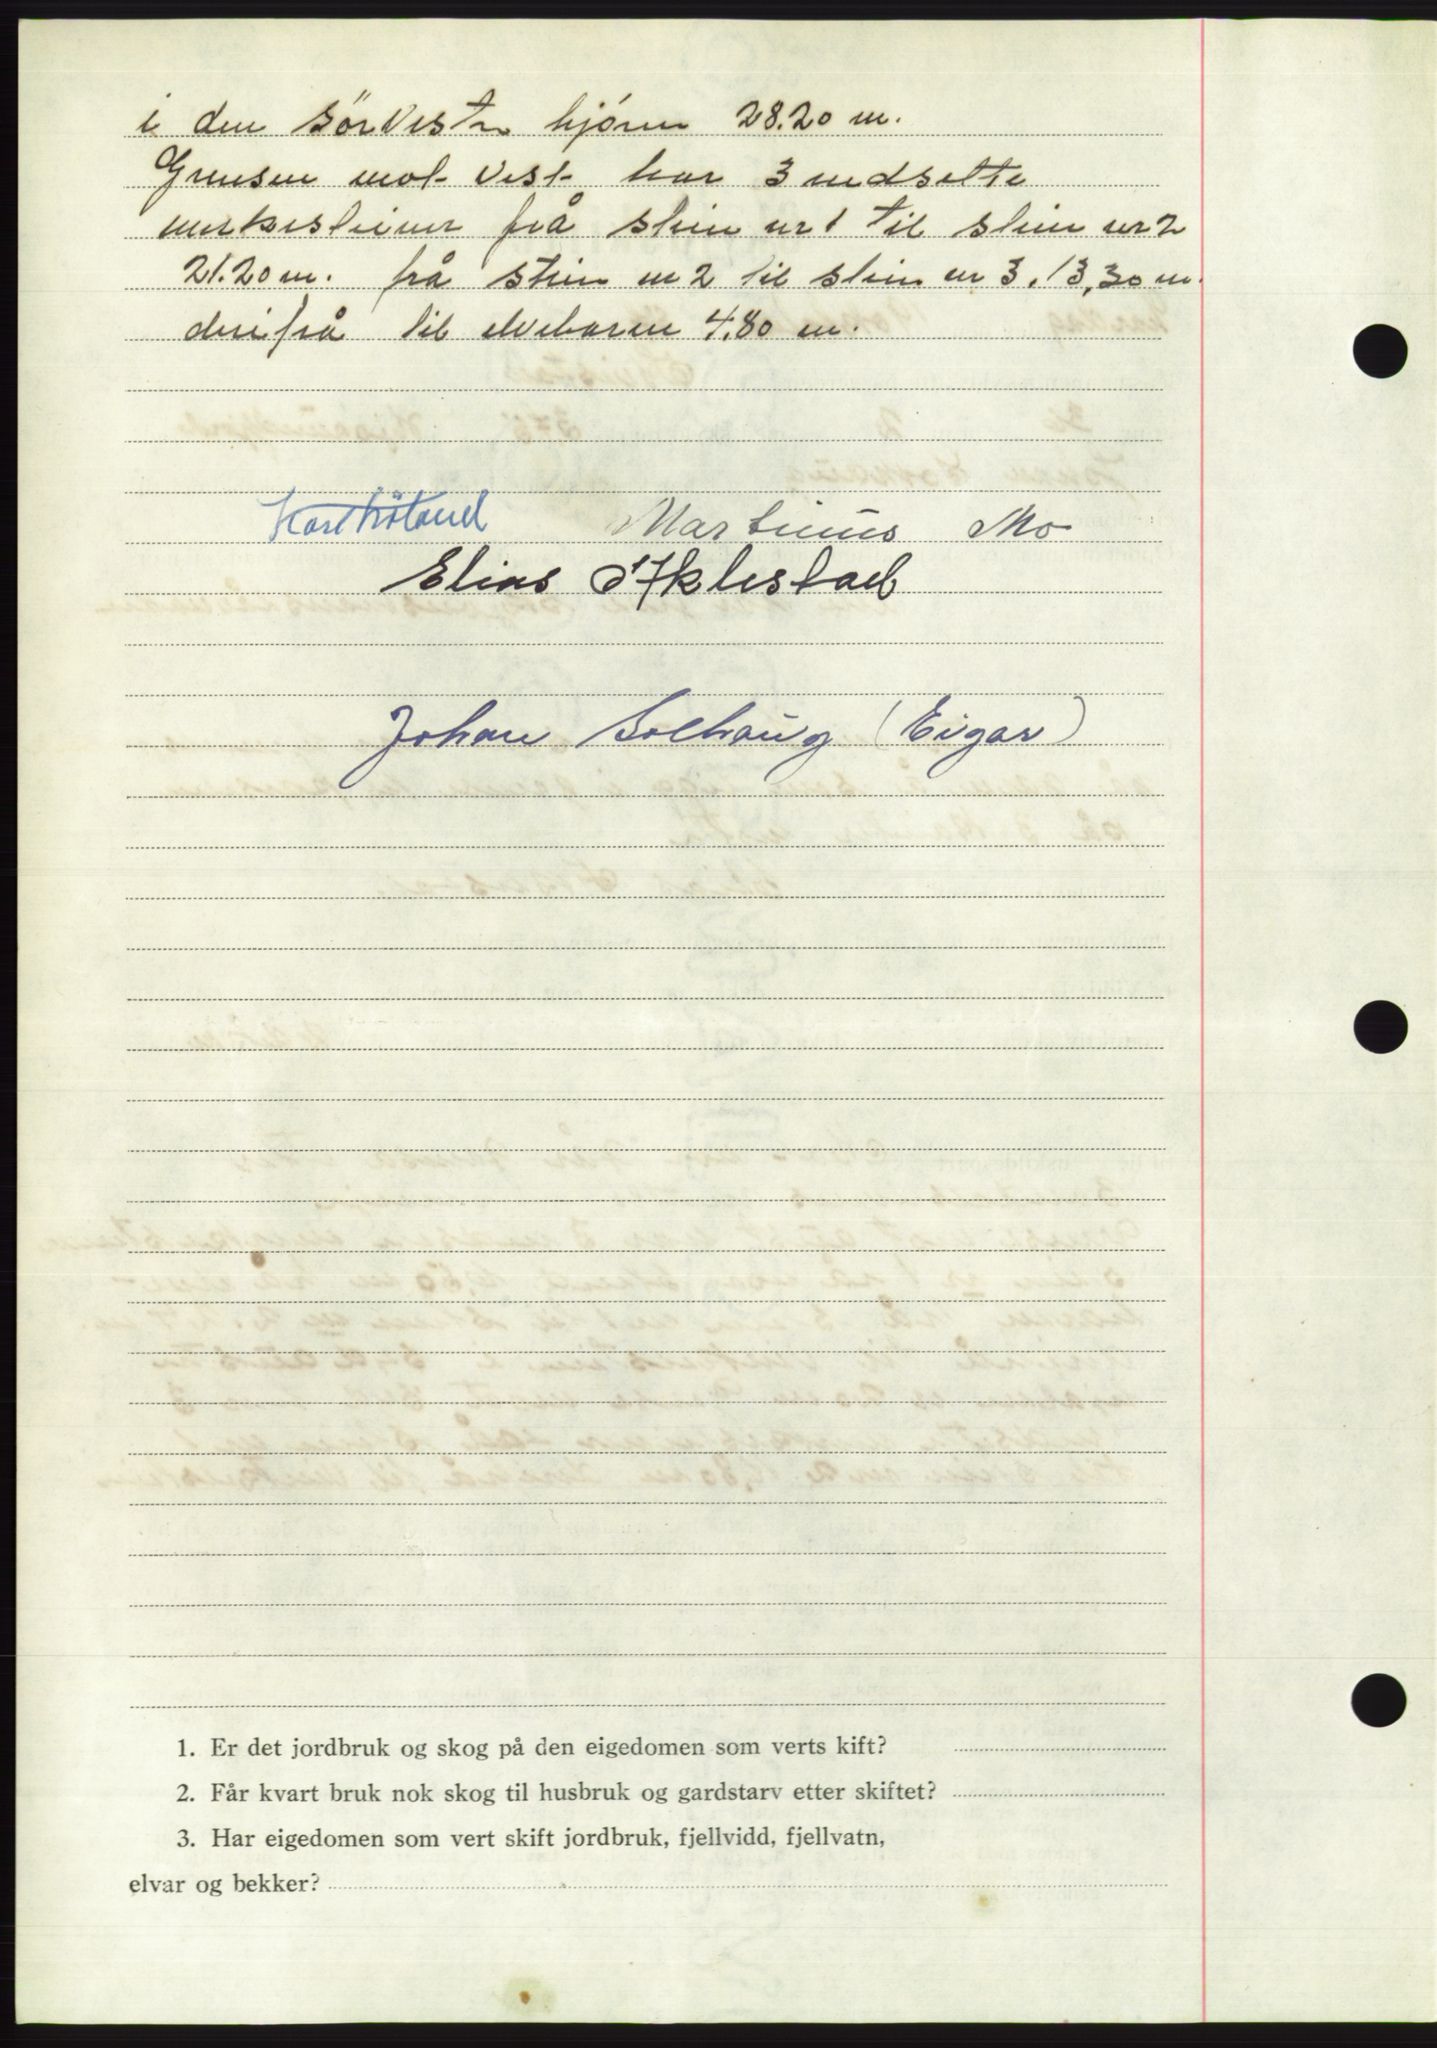 i den sörvestre hjörne 28.20 m.
Grensen mot vest har 3 nedsette
merkesteiner frå stein nr 1 til stein nr 2
21.20 m. frå stein nr 2 til stein nr 3. 13,30 m.
derifrå til elvebaren 4,80 m.
Martinus Mo
Elias
Johan Solhaug (Eigar)
1. Er det jordbruk og skog på den eigedomen som verts kift?
2. Får kvart bruk nok skog til husbruk og gardstarv etter skiftet?
3. Har eigedomen som vert skift jordbruk, fjellvidd, fjellvatn,
elvar og bekker?